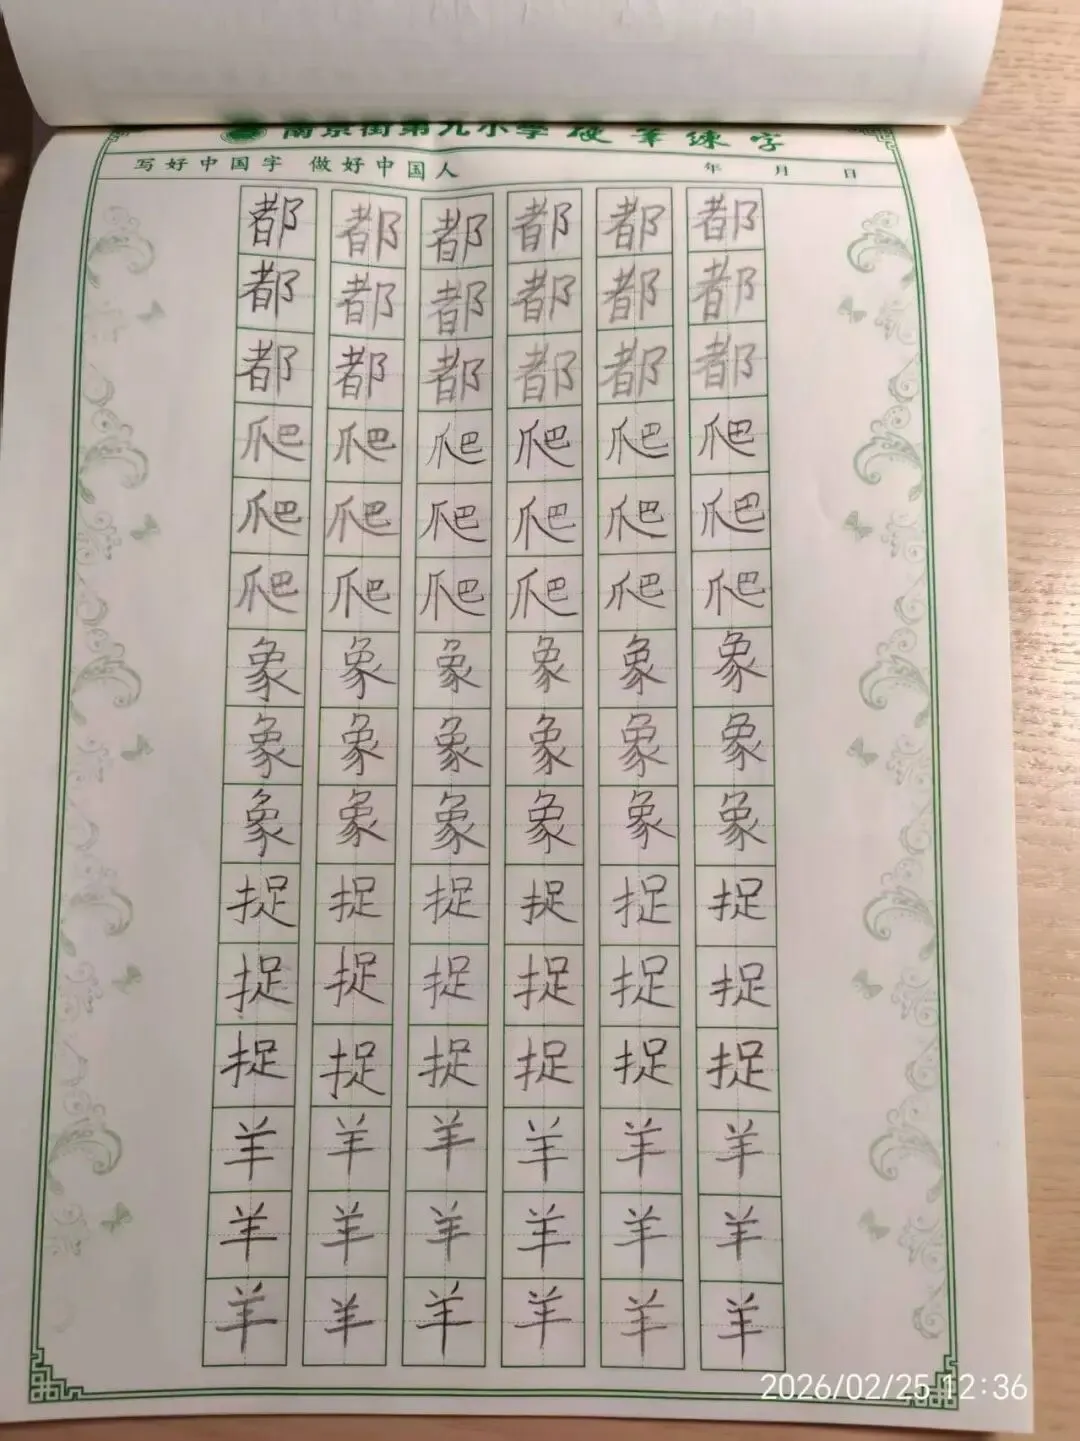 南京街第九小学 硬笔练字
写好中国字 做好中国人 年 月 日
都 都 都 都 都 都
都 都 都 都 都 都
都 都 都 都 都 都
爬 爬 爬 爬 爬 爬
爬 爬 爬 爬 爬 爬
爬 爬 爬 爬 爬 爬
象 象 象 象 象 象
象 象 象 象 象 象
象 象 象 象 象 象
捉 捉 捉 捉 捉 捉
捉 捉 捉 捉 捉 捉
捉 捉 捉 捉 捉 捉
羊 羊 羊 羊 羊 羊
羊 羊 羊 羊 羊 羊
羊 羊 羊 羊 羊 羊
2026/02/25 12:36